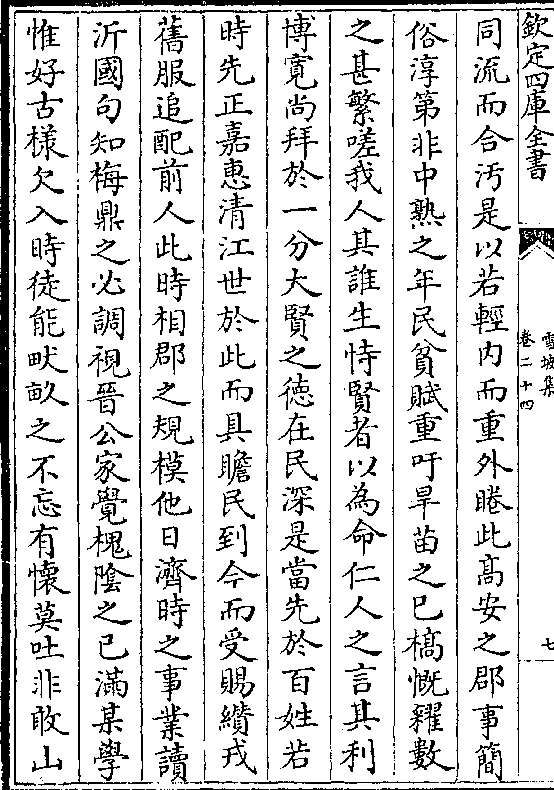 欽定四庫全書
雪坡集
卷二十四
七
同流而合汚是以若輕内而重外睠此髙安之郡事簡
俗淳第非中熟之年民貧賦重吁旱苗之已槁慨糴數
之甚繁嗟我人其誰生恃賢者以為命仁人之言其利
博寛尚拜於一分大賢之徳在民深是當先於百姓若
時先正嘉惠清江世於此而具瞻民到今而受賜纘戎
舊服追配前人此時相郡之規模他日濟時之事業讀
沂國句知梅鼎之必調視晉公家覺槐隂之已滿某學
惟好古様欠入時徒能畎畝之不忘有懷莫吐非敢山